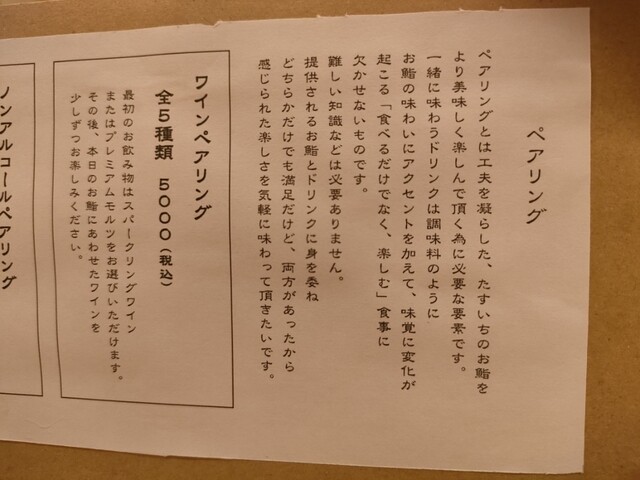 ペアリング
ペアリングとは工夫を凝らした、たすいちのお鮨を
より美味しく楽しんで頂く為に必要な要素です。
一緒に味わうドリンクは調味料のように
お鮨の味わいにアクセントを加えて、味覚に変化が
起こる「食べるだけでなく、楽しむ」食事に
欠かせないものです。
難しい知識などは必要ありません。
提供されるお鮨とドリンクに身を委ね
どちらかだけでも満足だけど、両方があったから
感じられた楽しさを気軽に味わって頂きたいです。
ワインペアリング
全5種類 5000(税込)
最初のお飲み物はスパークリングワイン
またはプレミアムモルツをお選びいただけます。
その後、本日のお鮨にあわせたワインを
少しずつお楽しみください。
ノンアルコールペアリング